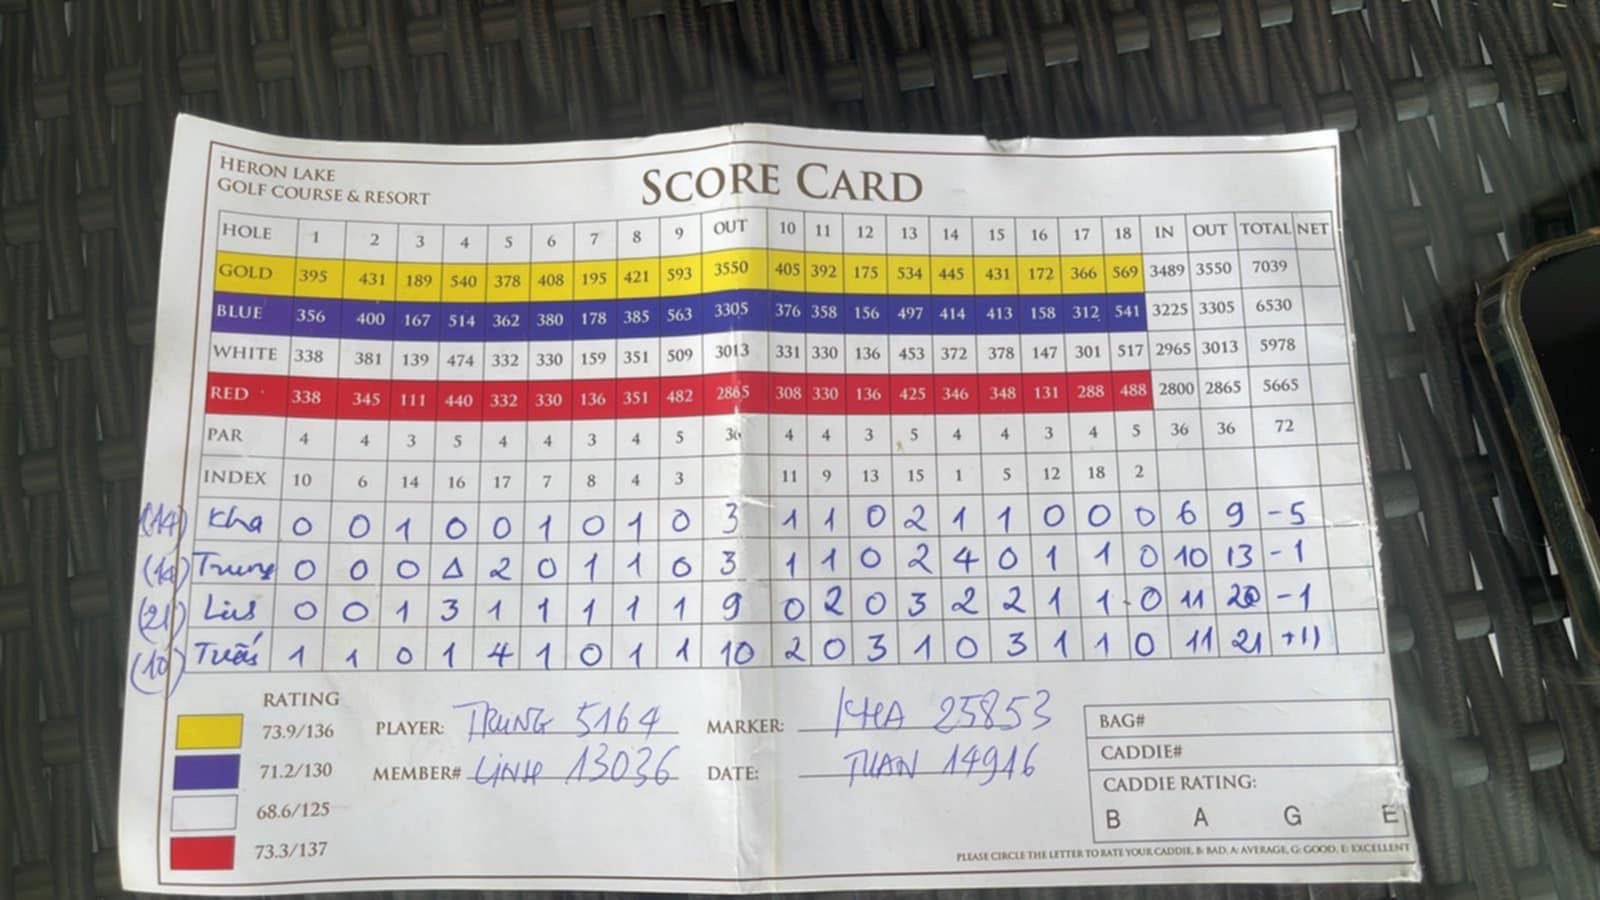 HERON LAKE
GOLF COURSE & RESORT
SCORE CARD
HOLE 1 2 3 4 5 6 7 8 9 OUT 10 11 12 13 14 15 16 17 18 IN OUT TOTAL NET
GOLD 395 431 189 540 378 408 195 421 593 3550 405 392 175 534 445 431 172 366 569 3489 3550 7039
BLUE 356 400 167 514 362 380 178 385 563 3305 376 358 156 497 414 413 158 312 541 3225 3305 6530
WHITE 338 381 139 474 332 330 159 351 509 3013 331 330 136 453 372 378 147 301 517 2965 3013 5978
RED 338 345 111 440 332 330 136 351 482 2865 308 330 136 425 346 348 131 288 488 2800 2865 5665
PAR 4 4 3 5 4 4 3 4 5 36 4 4 3 5 4 4 3 4 5 36 36 72
INDEX 10 6 14 16 17 7 8 4 3 11 9 13 15 1 5 12 18 2
(14) Kha 0 0 1 0 0 1 0 1 0 3 1 1 0 2 1 1 0 0 0 6 9 -5
Trung 0 0 0 Δ 2 0 1 1 0 3 1 1 0 2 4 0 1 1 0 10 13 -1
(21) 0 0 1 3 1 1 1 1 1 9 0 2 0 3 2 2 1 1 0 11 20 -1
(10) 1 1 0 1 4 1 0 1 1 10 2 0 3 1 0 3 1 1 0 11 21 +11
RATING
73.9/136
71.2/130
68.6/125
73.3/137
PLAYER: TRUNG 5164 MARKER: KHA 25853
MEMBER# LINH 13036 DATE: TUAN 14916
BAG#
CADDIE#
CADDIE RATING:
B A G E
PLEASE CIRCLE THE LETTER TO RATE YOUR CADDIE. B: BAD, A: AVERAGE, G: GOOD, E: EXCELLENT